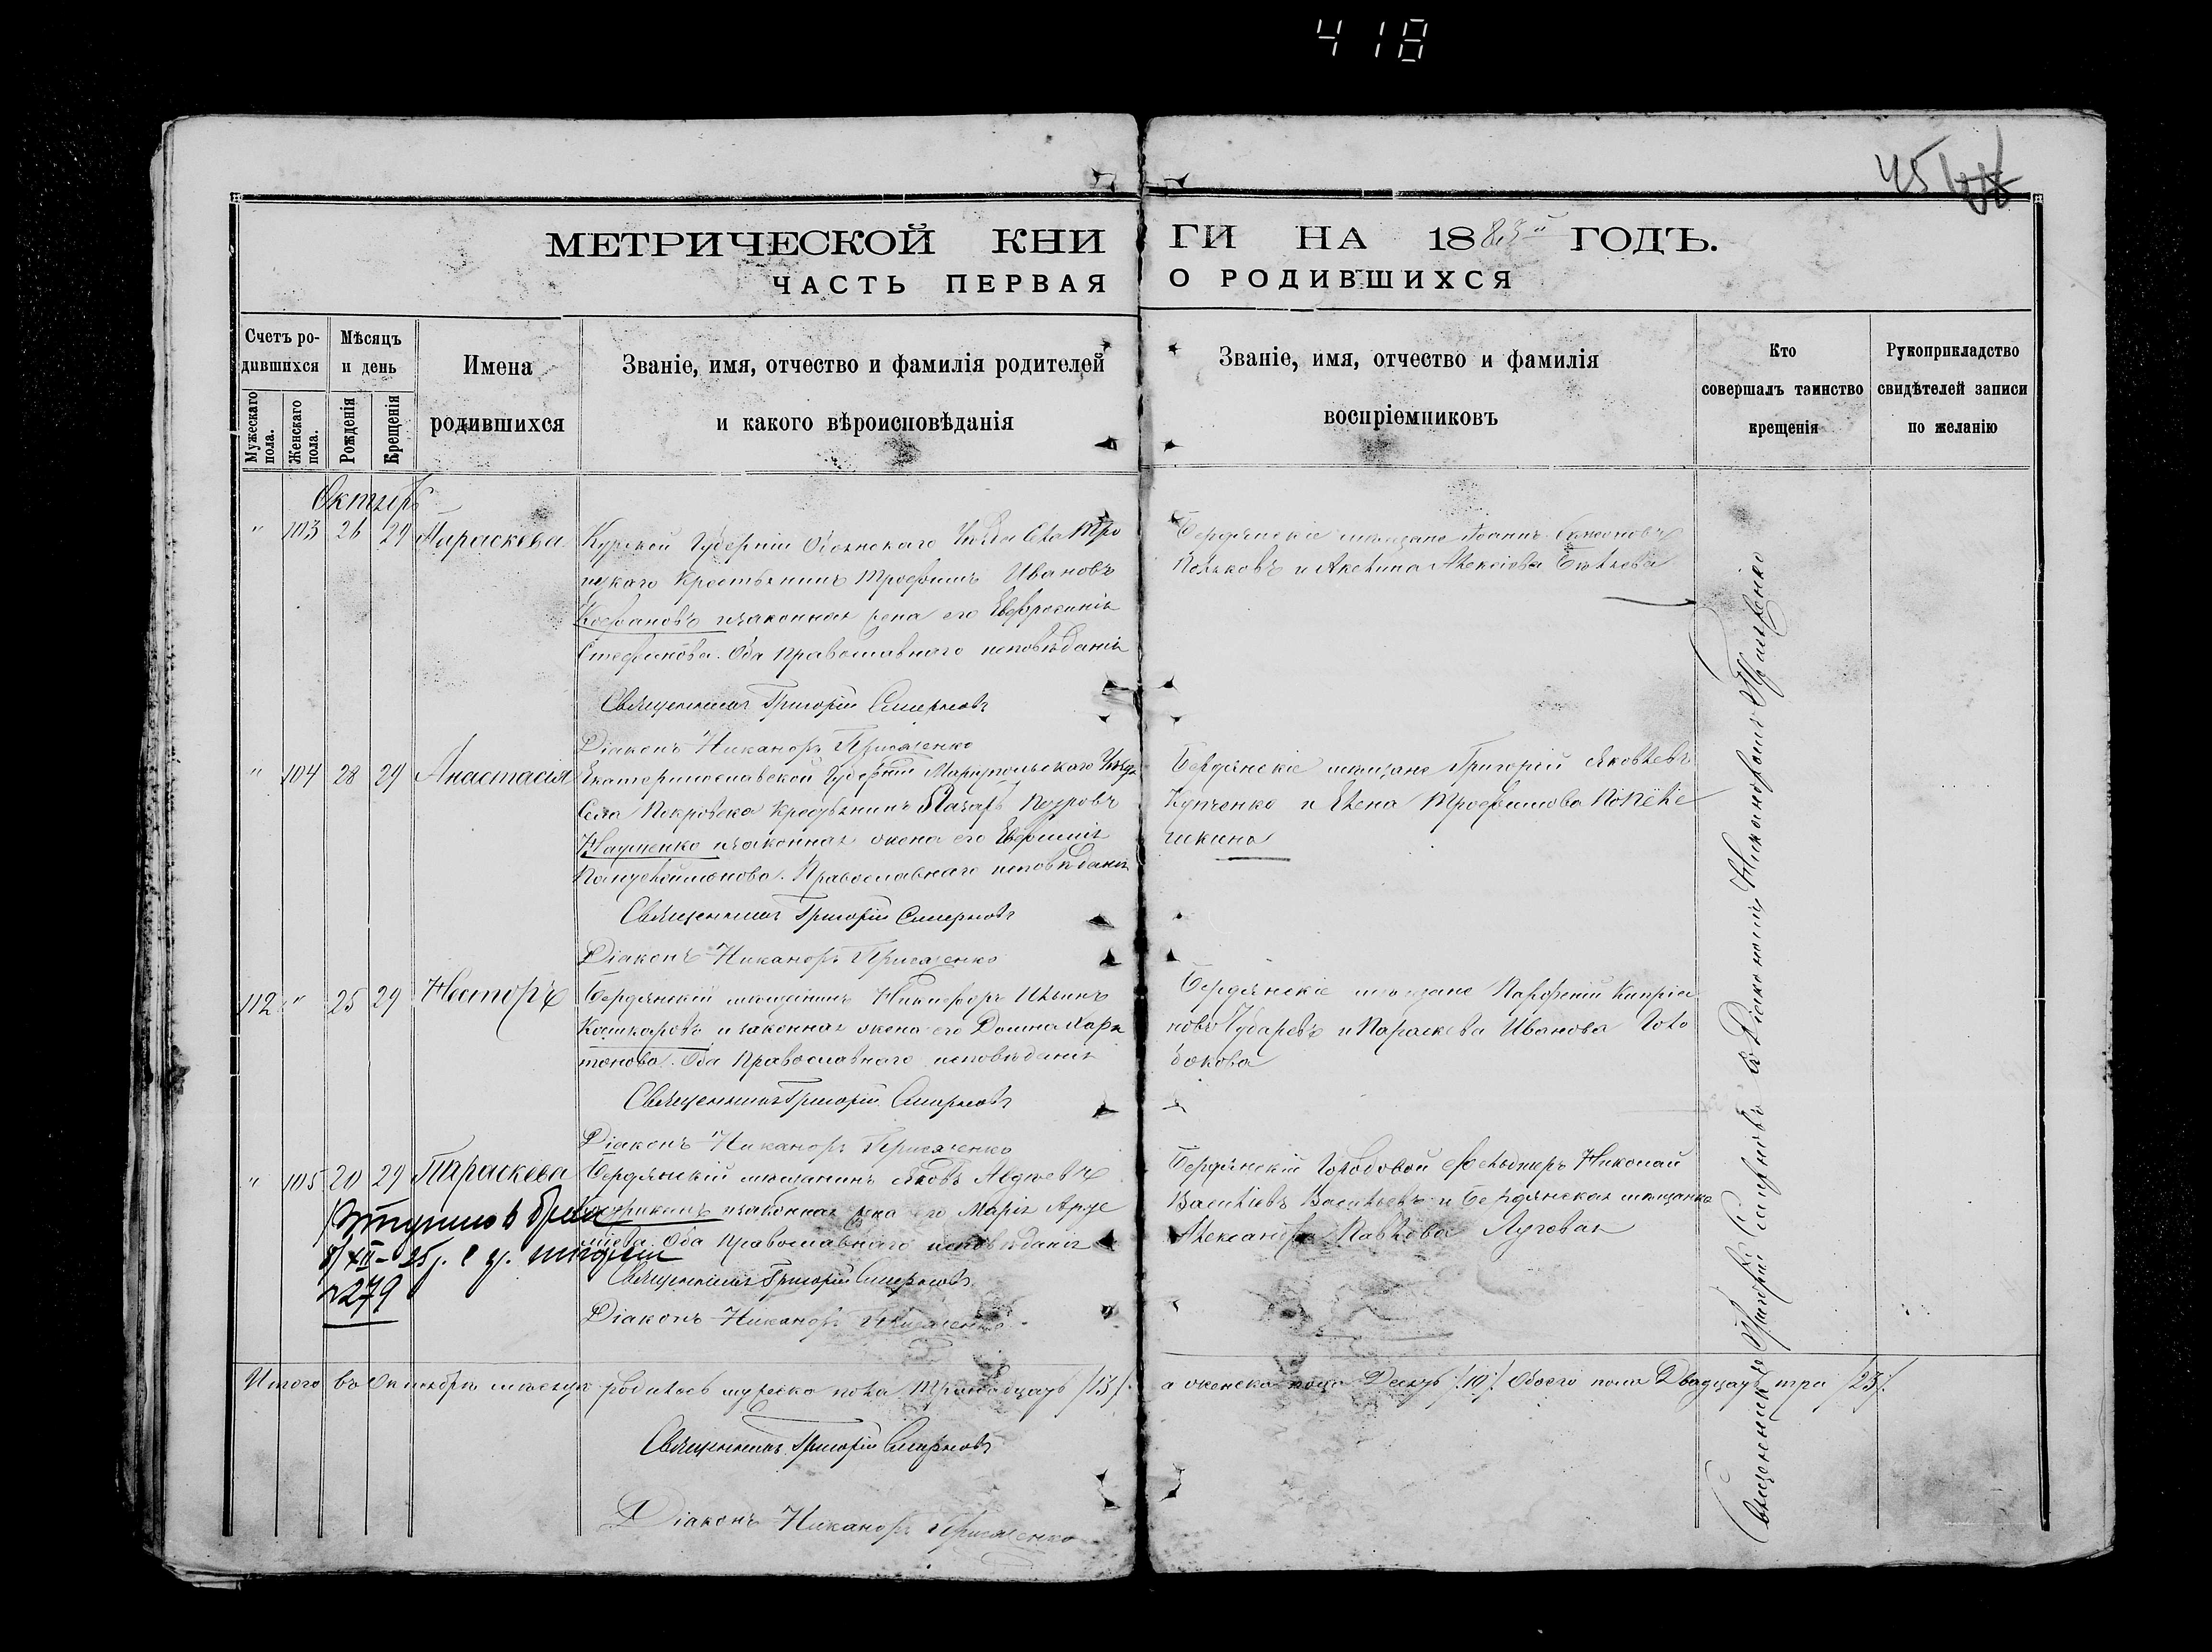 418
45
МЕТРИЧЕСКОЙ КНИГИ НА 188 ГОДЪ.
ЧАСТЬ ПЕРВАЯ О РОДИВШИХСЯ
Счетъ ро-
дившихся
Мужескаго пола.
Женскаго пола.
Мѣсяцъ
и день
Рожденія
Крещенія
Имена
родившихся
Званіе, имя, отчество и фамилія родителей
и какого вѣроисповѣданія
Званіе, имя, отчество и фамилія
воспріемниковъ
Кто
совершалъ таинство
крещенія
Рукоприкладство
свидѣтелей записи
по желанію
Октябрь
" 103 26 29 Параскева
Курской Губерніи Обоянскаго Уѣзда Села Тро
ицкаго Крестьянинъ Трофимъ Ивановъ
и законная жена его Евфросинія
Стефанова. Оба Православнаго исповѣданія
Священникъ Григорій Смирновъ
Діаконъ Никаноръ
Бердянскіе мещане Іоаннъ
и Акелина Алексіева
" 104 28 29 Анастасія
Екатеринославской Губерніи Маріупольскаго Уѣзда
Села Покровска Крестьянинъ Лазарь Петровъ
Науменко и законная жена его Евфимія
Пантелеймонова. Православнаго исповѣданія
Священникъ Григорій Смирновъ
Діаконъ Никаноръ
Бердянскіе мещане Григорій Яковлевъ
Купченко и Елена Трофимова
112 " 25 29 Несторъ
Бердянскій мещанинъ Никифоръ Ильинъ
Кашкаровъ и законная жена его Домна Хари
тонова. Оба Православнаго исповѣданія
Священникъ Григорій Смирновъ
Діаконъ Никаноръ
Бердянскіе мещане Парфеній Кипріа
новъ Губаревъ и Параскева Иванова Голо
бокова
" 105 20 29 Параскева
Бердянскій мещанинъ Яковъ Авдѣевъ
и законная жена его Марія
Оба Православнаго исповѣданія
Священникъ Григорій Смирновъ
Діаконъ Никаноръ
Бердянскій Городовой Фельдшеръ Николай
Василіевъ Васильевъ и Бердянская мещанка
Александра Павлова Луговая
Вступила в брак
XII-25 г. с гр.
№279
Священникъ Григорій Смирновъ съ Діакономъ Никаноромъ
Итого въ Октябрѣ мѣсяцѣ родилось мужеска пола Тринадцать /13/. а женска пола Десять /10/. Обоего пола Двадцать три /23/.
Священникъ Григорій Смирновъ
Діаконъ Никаноръ